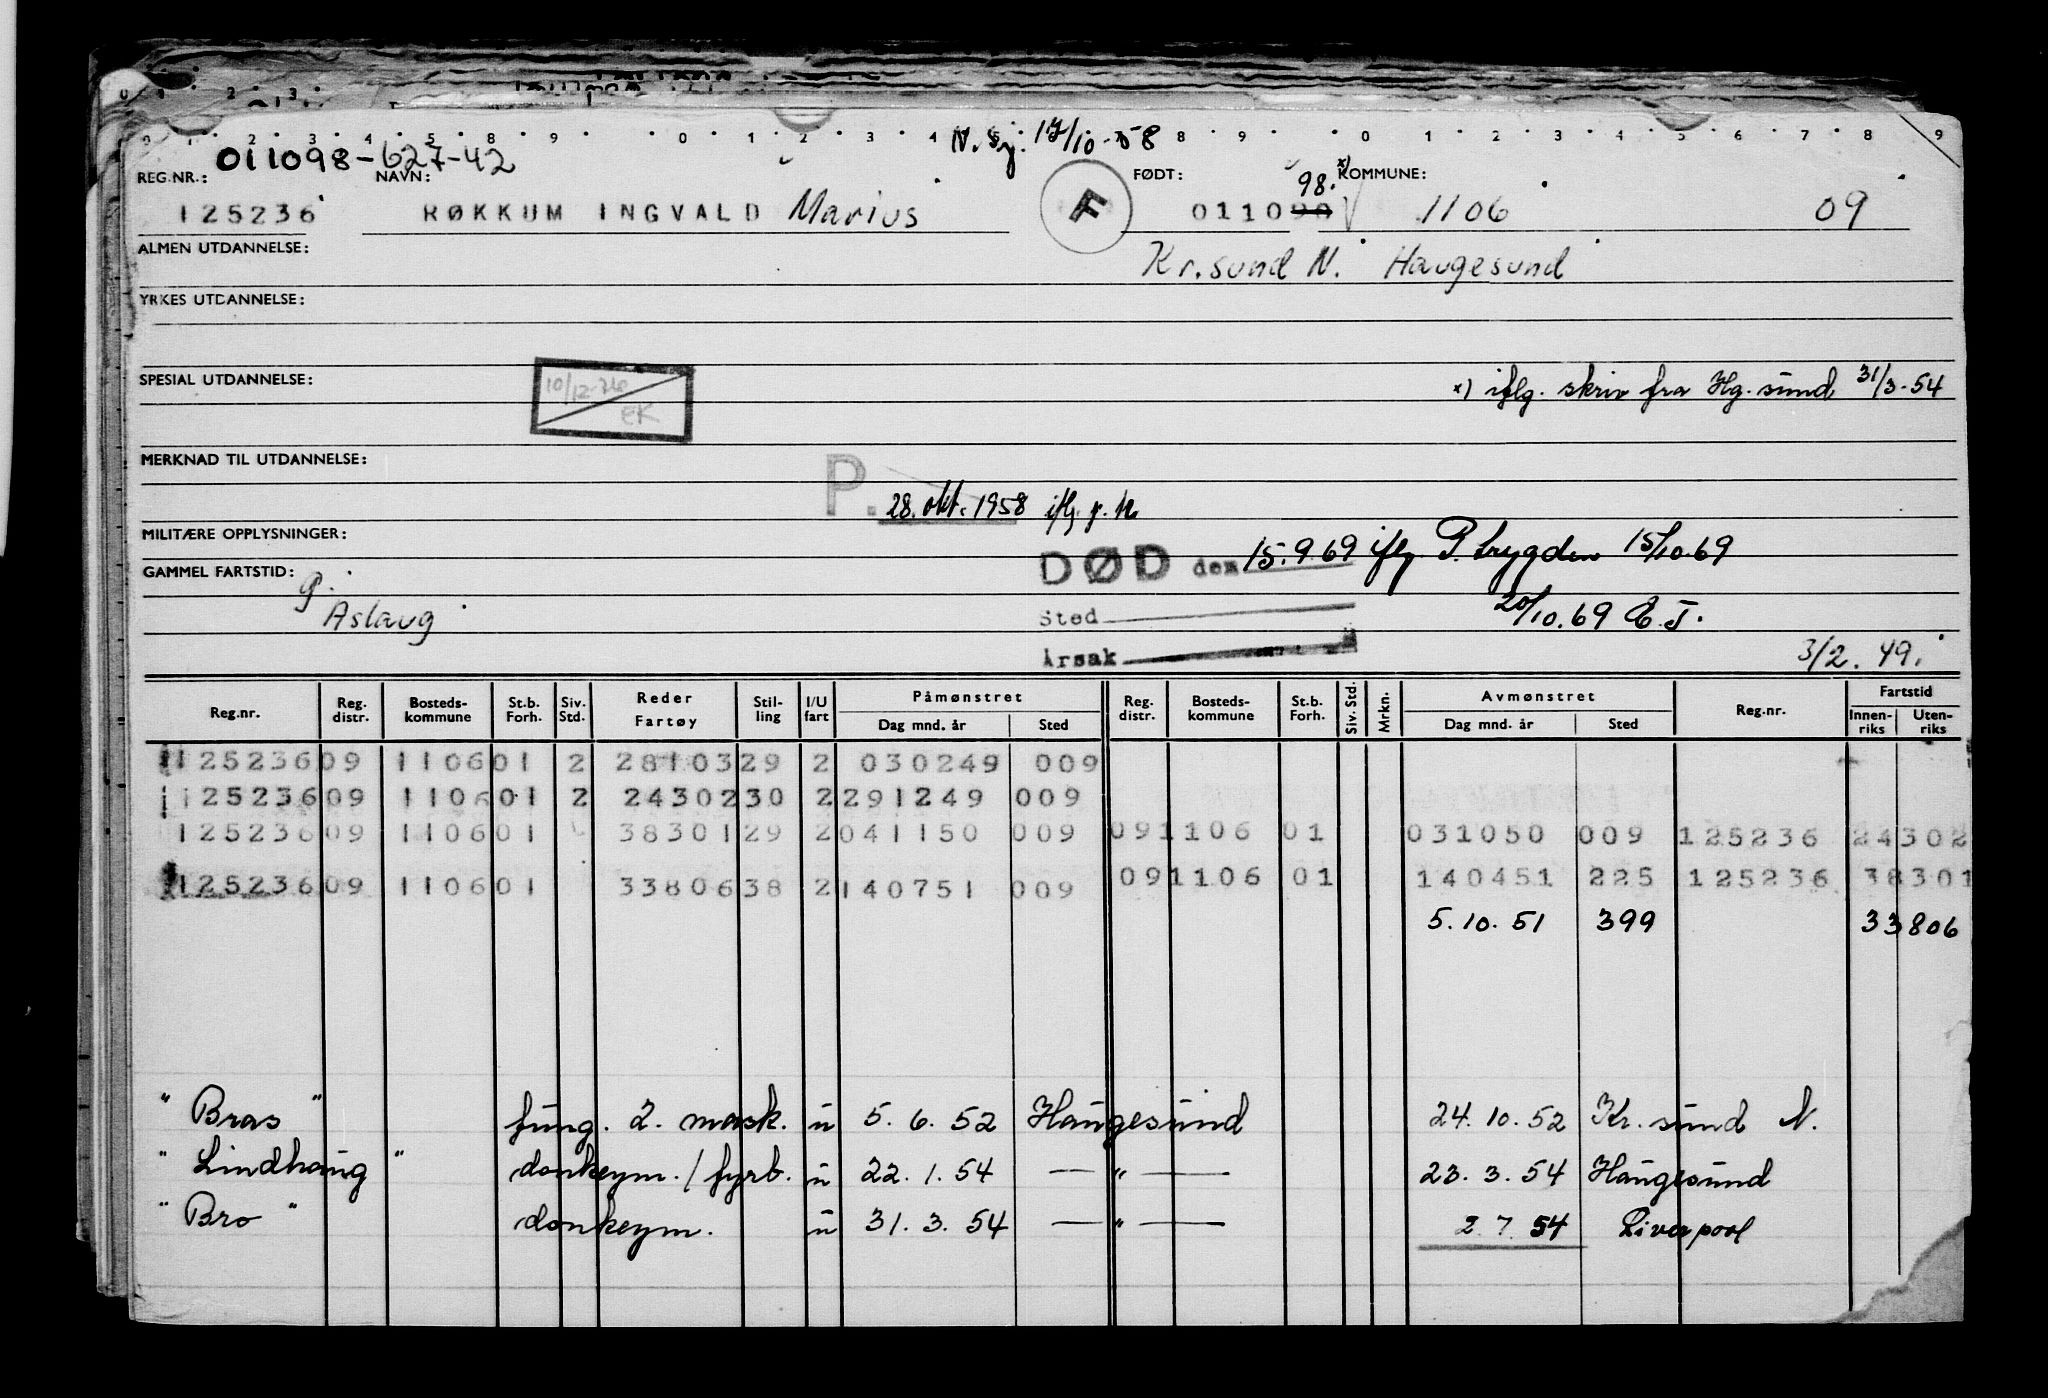 N. Sj. 17/10-58
011098-627-42
REG.NR.: NAVN: FØDT: x) KOMMUNE:
125236 RØKKUM INGVALD Marius F 98. 011090 1106 09
ALMEN UTDANNELSE: Kr.sund N. Haugesund
YRKES UTDANNELSE:
SPESIAL UTDANNELSE: 10/12-76 EK x) iflg. skriv fra Hg.sund 31/3-54
MERKNAD TIL UTDANNELSE:
P. 28. okt. 1958 iflg. p. tr.
MILITÆRE OPPLYSNINGER:
DØD den 15.9.69 iflg P.trygden 15/10.69
GAMMEL FARTSTID: g.
Aslaug Sted 20/10.69 E.J.
Årsak 3/2.49.
Reg.nr. Reg. distr. Bosteds- kommune St.b. Forh. Siv. Std. Reder Fartøy Stil- ling I/U fart Påmønstret Dag mnd. år Sted Reg. distr. Bosteds- kommune St.b. Forh. Siv. Std. Mrkn. Avmønstret Dag mnd. år Sted Reg.nr. Fartstid Innen- riks Uten- riks
125236 09 1106 01 2 28103 29 2 030249 009
125236 09 1106 01 2 24302 30 2 291249 009
125236 09 1106 01 38301 29 2 041150 009 09 1106 01 031050 009 125236 24302
125236 09 1106 01 33806 38 2 140751 009 09 1106 01 140451 225 125236 38301
5.10.51 399 33806
"Bras" fung. 2. mask. u 5.6.52 Haugesund 24.10.52 Kr.sund N.
"Lindhaug" donkeym./fyrb. u 22.1.54 — " — 23.3.54 Haugesund
"Bro" donkeym. u 31.3.54 — " — 2.7.54 Liverpool